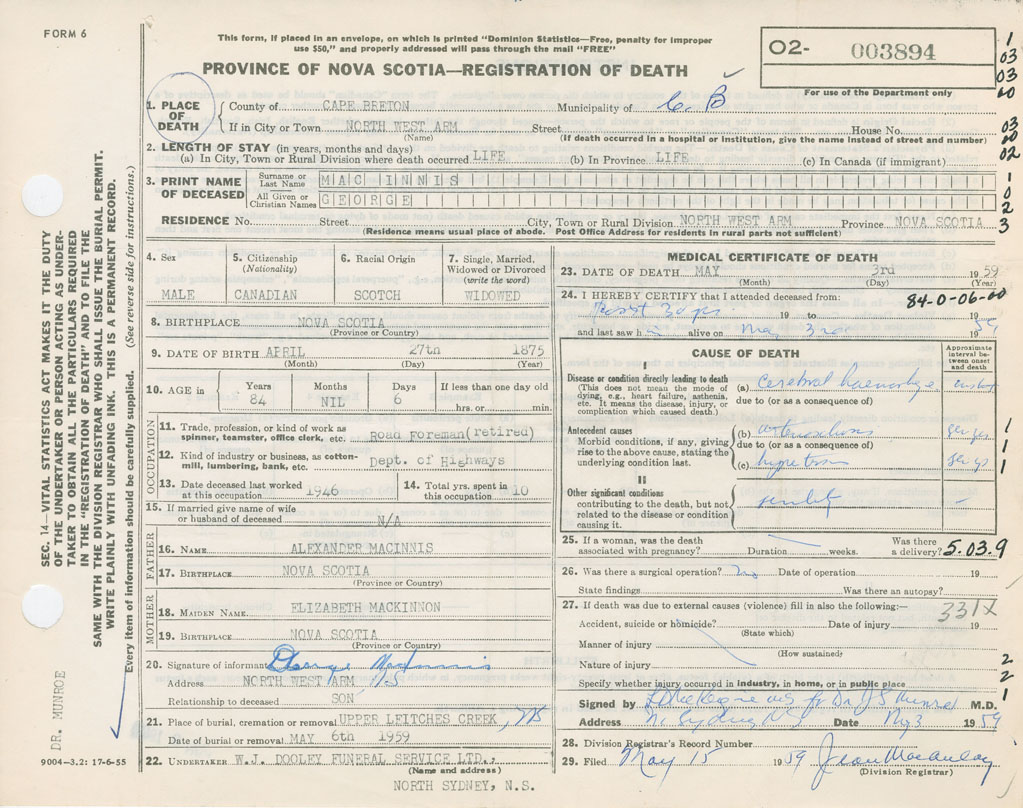 FORM 6
This form, if placed in an envelope, on which is printed "Dominion Statistics—Free, penalty for improper
use $50," and properly addressed will pass through the mail "FREE"
PROVINCE OF NOVA SCOTIA—REGISTRATION OF DEATH
O2- 003894
For use of the Department only
1. PLACE OF DEATH
County of CAPE BRETON Municipality of C. B
If in City or Town NORTH WEST ARM Street House No.
(Name) (If death occurred in a hospital or institution, give the name instead of street and number)
2. LENGTH OF STAY (in years, months and days)
(a) In City, Town or Rural Division where death occurred LIFE (b) In Province LIFE (c) In Canada (if immigrant)
3. PRINT NAME OF DECEASED
Surname or Last Name MAC INNIS
All Given or Christian Names GEORGE
RESIDENCE No. Street City, Town or Rural Division NORTH WEST ARM Province NOVA SCOTIA
(Residence means usual place of abode. Post Office Address for residents in rural parts not sufficient)
1
03
03
00
03
00
02
1
0
2
3
4. Sex
MALE
5. Citizenship (Nationality)
CANADIAN
6. Racial Origin
SCOTCH
7. Single, Married, Widowed or Divorced (write the word)
WIDOWED
8. BIRTHPLACE NOVA SCOTIA
(Province or Country)
9. DATE OF BIRTH APRIL 27th 1875
(Month) (Day) (Year)
10. AGE in
Years Months Days If less than one day old
84 NIL 6 hrs. or min.
OCCUPATION
11. Trade, profession, or kind of work as spinner, teamster, office clerk, etc. Road Foreman(retired)
12. Kind of industry or business, as cotton-mill, lumbering, bank, etc. Dept. of Highways
13. Date deceased last worked at this occupation 1946
14. Total yrs. spent in this occupation 10
15. If married give name of wife or husband of deceased N/A
FATHER
16. NAME ALEXANDER MACINNIS
17. BIRTHPLACE NOVA SCOTIA
(Province or Country)
MOTHER
18. MAIDEN NAME ELIZABETH MACKINNON
19. BIRTHPLACE NOVA SCOTIA
(Province or Country)
20. Signature of informant George MacInnis
Address NORTH WEST ARM NS
Relationship to deceased SON
21. Place of burial, cremation or removal UPPER LEITCHES CREEK, NS
Date of burial or removal MAY 6th 1959
22. UNDERTAKER W.J. DOOLEY FUNERAL SERVICE LTD.,
(Name and address)
NORTH SYDNEY, N.S.
MEDICAL CERTIFICATE OF DEATH
23. DATE OF DEATH MAY 3rd 1959
(Month) (Day) (Year)
24. I HEREBY CERTIFY that I attended deceased from: 84-0-06-00
19 to 19
and last saw h alive on May 3rd 19 59
CAUSE OF DEATH
Approximate interval between onset and death
I
Disease or condition directly leading to death
(This does not mean the mode of dying, e.g., heart failure, asthenia, etc. It means the disease, injury, or complication which caused death.)
(a) cerebral haemorhage
due to (or as a consequence of)
Antecedent causes
Morbid conditions, if any, giving rise to the above cause, stating the underlying condition last.
(b)
due to (or as a consequence of)
(c)
II
Other significant conditions contributing to the death, but not related to the disease or condition causing it.
1
1
1
25. If a woman, was the death associated with pregnancy? Duration weeks. Was there a delivery? 5.03.9
26. Was there a surgical operation? no Date of operation 19
State findings Was there an autopsy?
27. If death was due to external causes (violence) fill in also the following:— 331X
Accident, suicide or homicide? Date of injury 19
(State which)
Manner of injury
(How sustained)
Nature of injury
Specify whether injury occurred in industry, in home, or in public place
2
2
1
Signed by for Dr. J S Munroe M.D.
Address N. Sydney NS Date May 3 1959
28. Division Registrar's Record Number
29. Filed May 15 1959 Jean Macaulay
(Division Registrar)
SEC. 14—VITAL STATISTICS ACT MAKES IT THE DUTY
OF THE UNDERTAKER OR PERSON ACTING AS UNDER-
TAKER TO OBTAIN ALL THE PARTICULARS REQUIRED
IN THE "REGISTRATION OF DEATH" AND TO FILE THE
SAME WITH THE DIVISION REGISTRAR WHO SHALL ISSUE THE BURIAL PERMIT.
WRITE PLAINLY WITH UNFADING INK. THIS IS A PERMANENT RECORD.
Every item of information should be carefully supplied. (See reverse side for instructions.)
DR. MUNROE
9004-3.2: 17-6-55